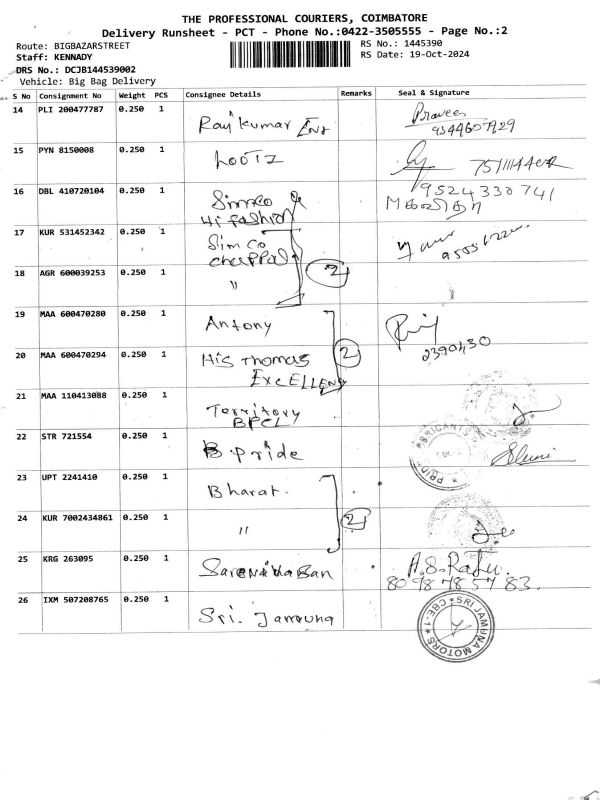 THE PROFESSIONAL COURIERS, COIMBATORE
Delivery Runsheet - PCT - Phone No.:0422-3505555 - Page No.:2
Route: BIGBAZARSTREET RS No.: 1445390
Staff: KENNADY RS Date: 19-Oct-2024
DRS No.: DCJB144539002
Vehicle: Big Bag Delivery
S No Consignment No Weight PCS Consignee Details Remarks Seal & Signature
14 PLI 200477787 0.250 1
Rajkumar Praveen
9344607929
15 PYN 8150008 0.250 1
Lootz
16 DBL 410720104 0.250 1 9524330741
Simco
Hi fashion
17 KUR 531452342 0.250 1
Simco
Chappal
18 AGR 600039253 0.250 1 2
"
19 MAA 600470280 0.250 1
Antony
2390430
20 MAA 600470294 0.250 1 2
His Thomas
EXCELLENT
21 MAA 110413088 0.250 1
Territory
BPCL
22 STR 721554 0.250 1
B. Pride
23 UPT 2241410 0.250 1
Bharat.
24 KUR 7002434861 0.250 1 2
"
25 KRG 263095 0.250 1 A.S. Raju.
8098785783.
26 IXM 507208765 0.250 1
Sri. Jamuna
SRI JAMUNA MOTORS CBE-1